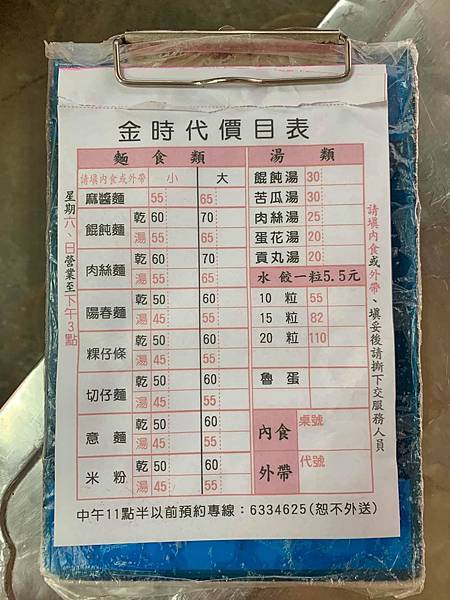 金時代價目表
麵食類
請填內食或外帶 小 大
麻醬麵 55 65
餛飩麵 乾 60 70
湯 55 65
肉絲麵 乾 60 70
湯 55 65
陽春麵 乾 50 60
湯 45 55
粿仔條 乾 50 60
湯 45 55
切仔麵 乾 50 60
湯 45 55
意麵 乾 50 60
湯 45 55
米粉 乾 50 60
湯 45 55
湯類
餛飩湯 30
苦瓜湯 30
肉絲湯 25
蛋花湯 20
貢丸湯 20
水餃一粒5.5元
10 粒 55
15 粒 82
20 粒 110
魯蛋
內食 桌號
外帶 代號
星期六、日營業至下午3點
請填內食或外帶、填妥後請撕下交服務人員
中午11點半以前預約專線：6334625(恕不外送)